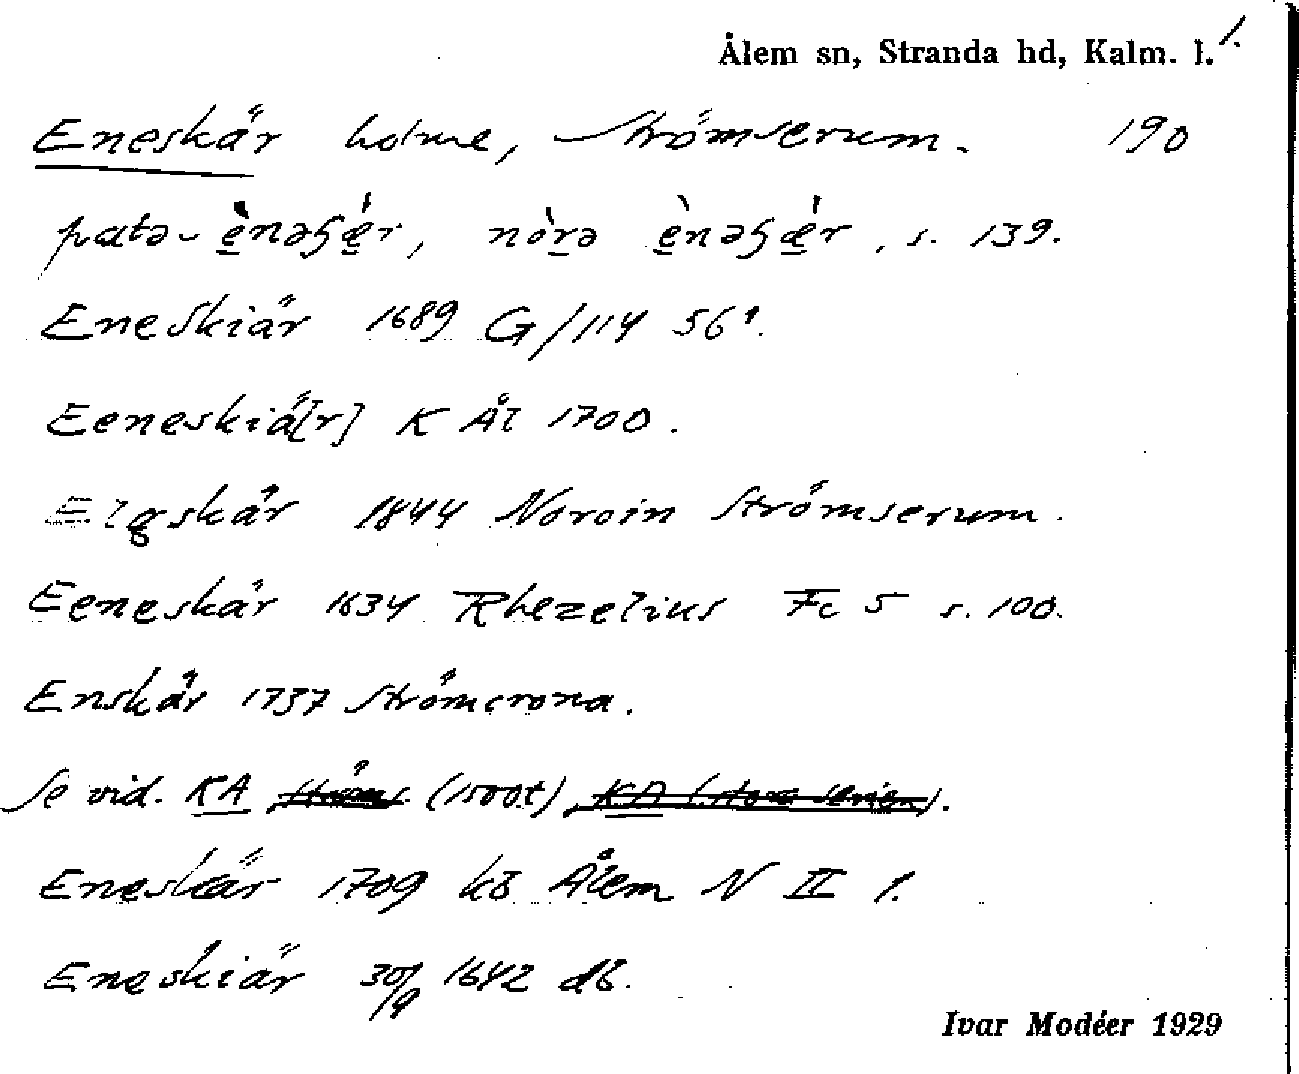 Ålem sn, Stranda hd, Kalm. l. 1.
Eneskär holme, Strömserum. 190
s. 139.
Eneskiär 1689 G/114 56¹.
Eeneskiä[r] K Ål 1700.
Elgskär 1844 Noroin Strömserum.
Eeneskär 1634 Rhezelius Fc 5 s. 100.
Enskär 1737 Strömcrona.
Se vid. KA Ströms. (1500t), KA (stora serien).
Eneskär 1709 kb Ålem N II 1.
Eneskiär 30/9 1642 db.
Ivar Modéer 1929